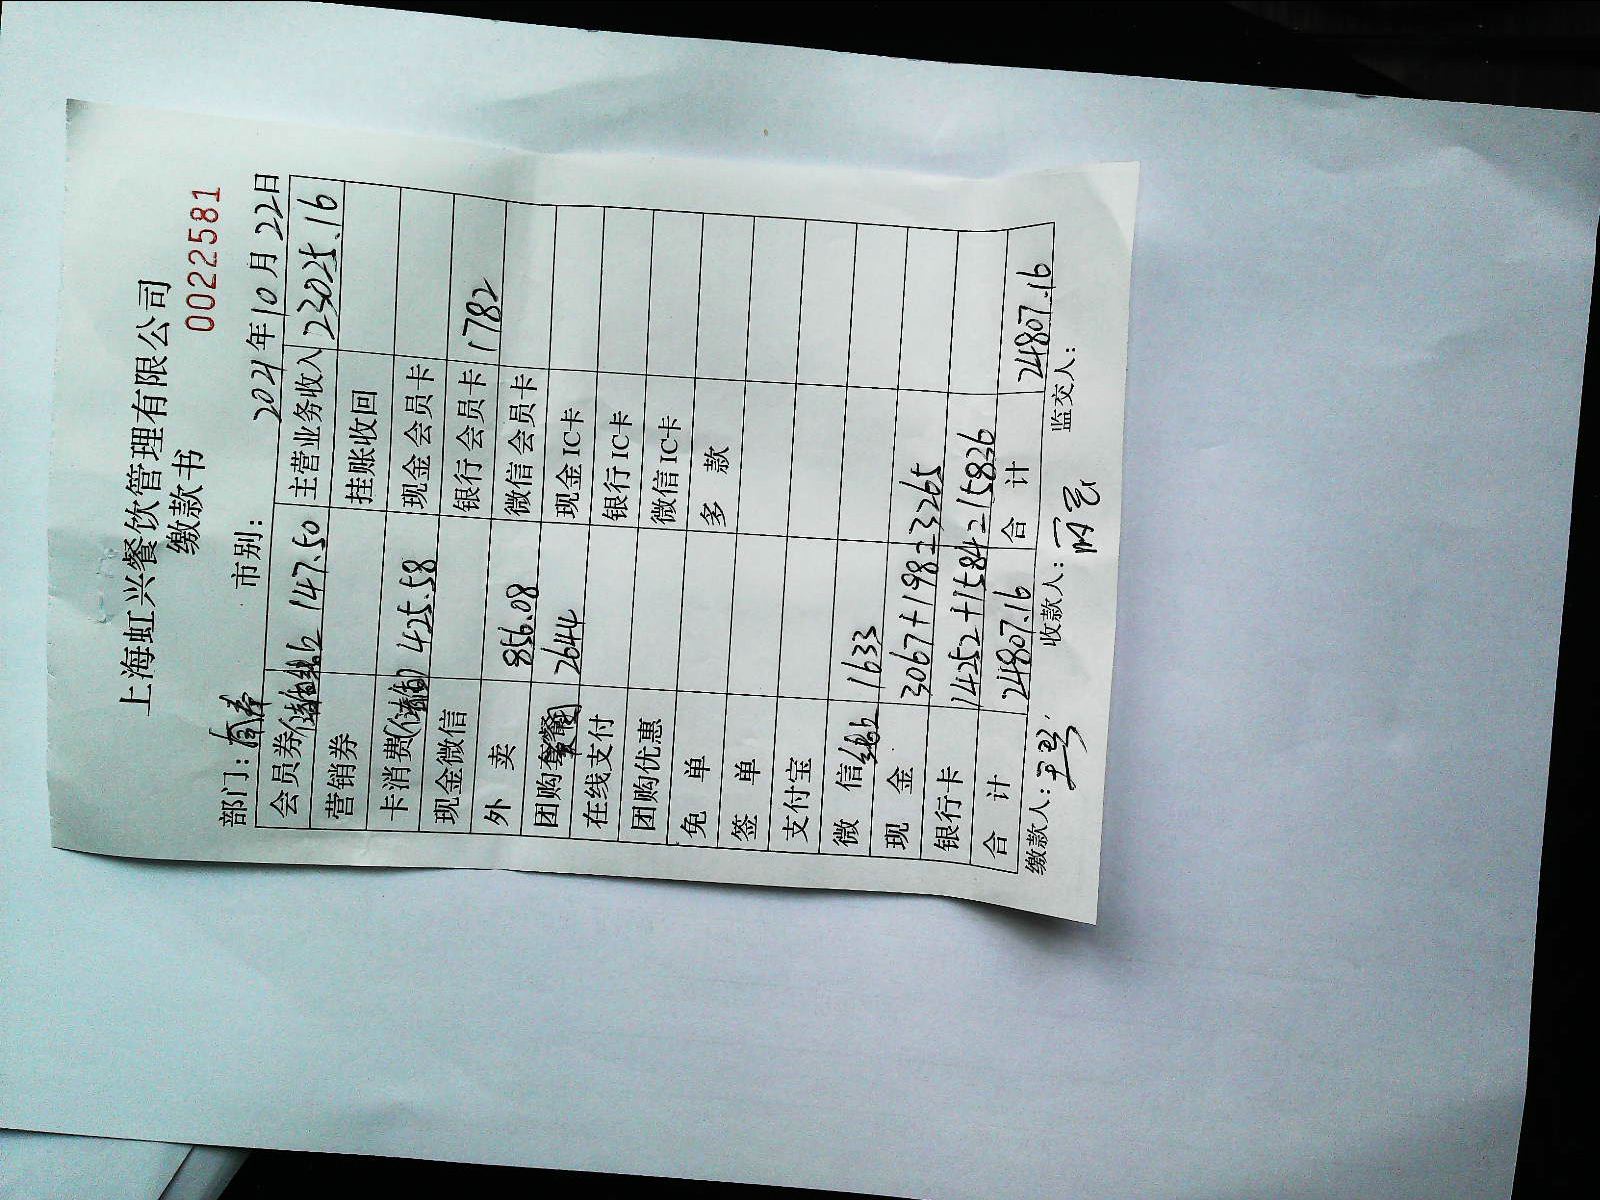 上海虹兴餐饮管理有限公司
缴款书
0022581
部门: 市别: 2021年10月22日
会员券 147.50 主营业务收入 23025.16
营销券 挂账收回
卡消费(储值) 425.58 现金会员卡
现金微信 银行会员卡 1782
外卖 856.08 微信会员卡
团购套餐 2644 现金IC卡
在线支付 银行IC卡
团购优惠 微信IC卡
免单 多款
签单
支付宝
微信 1633
现金 3067+198=3265
银行卡 14252+1584=15836
合计 24807.16 合计 24807.16
缴款人: 收款人: 监交人: